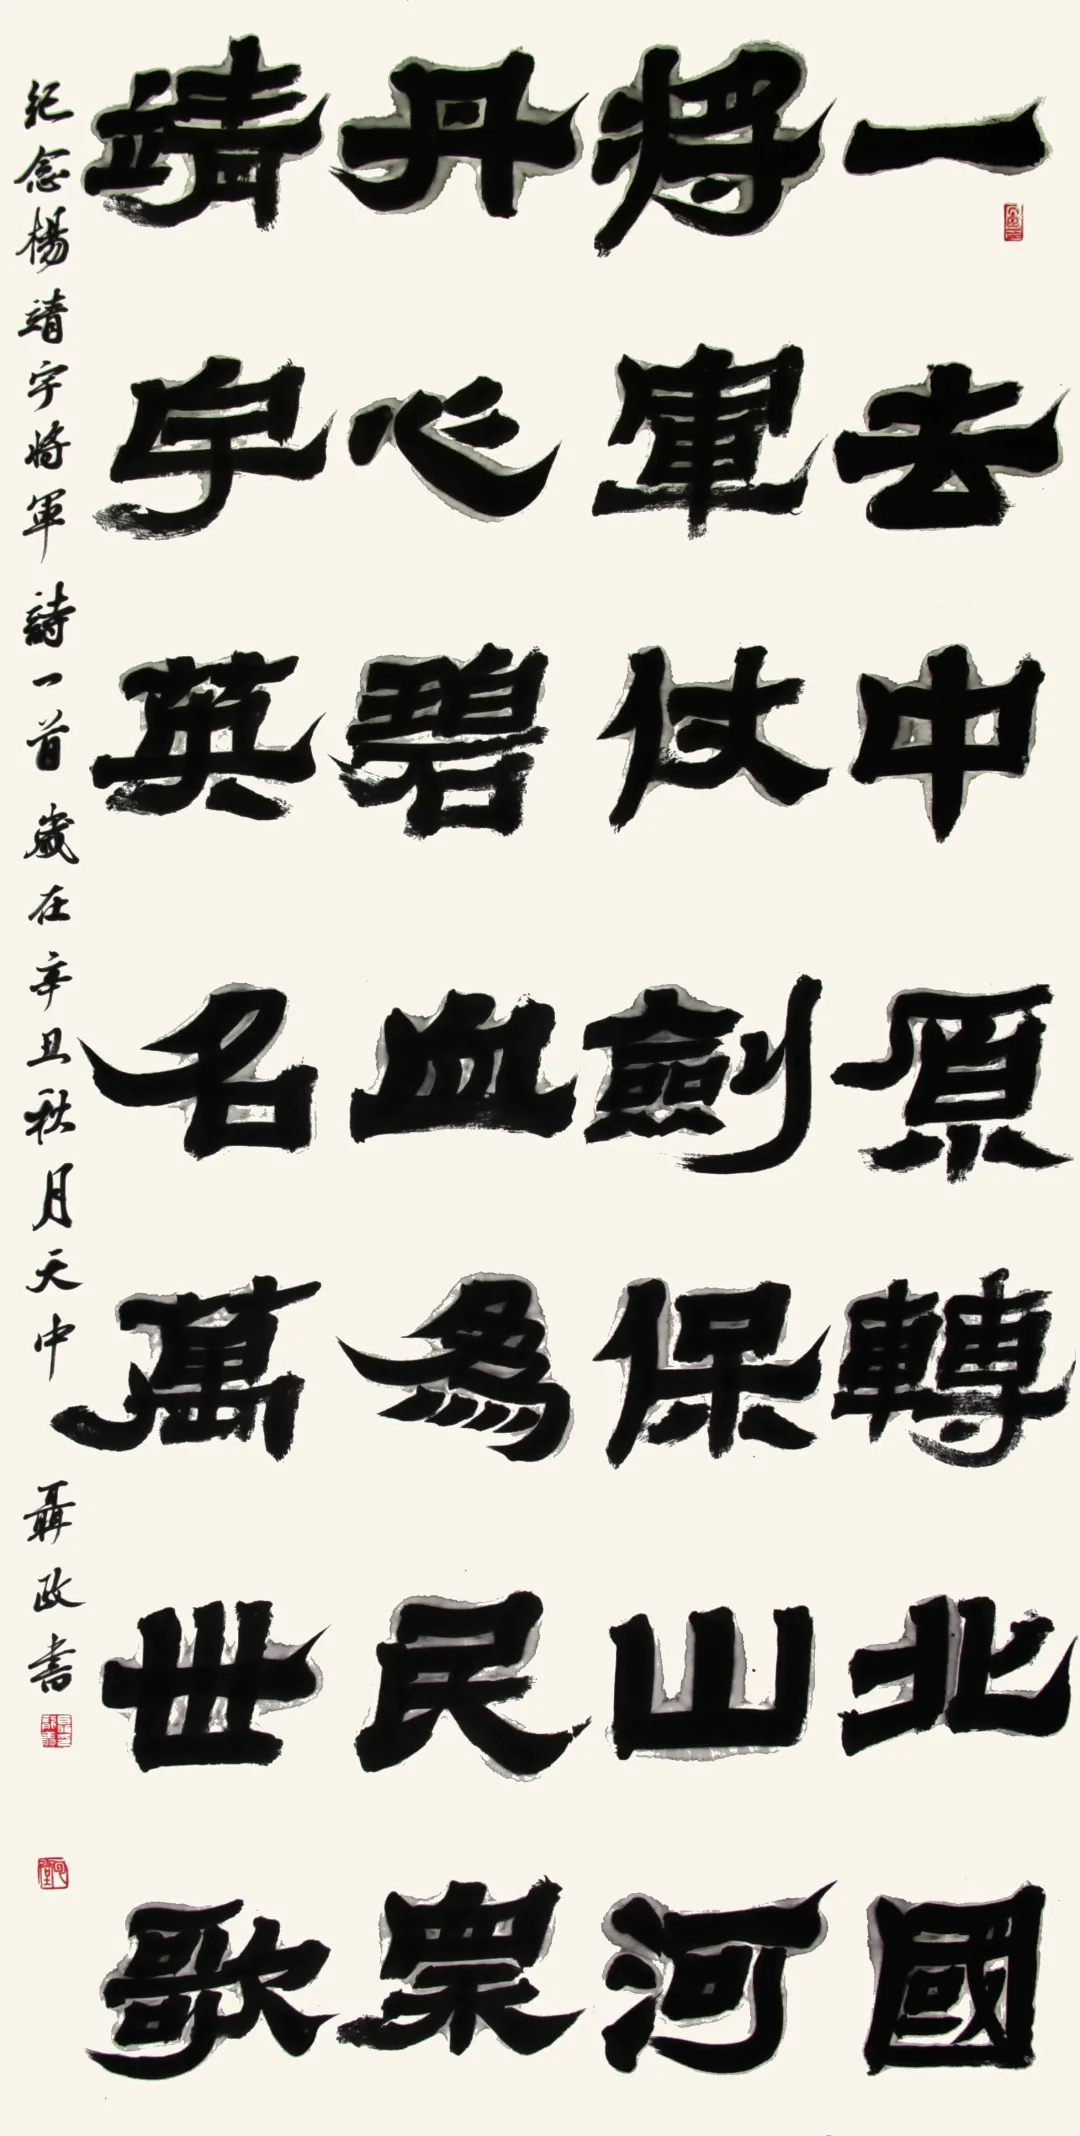 一去中原轉北國
將軍仗劍保山河
丹心碧血為民衆
靖宇英名萬世歌
紀念楊靖宇將軍詩一首歲在辛丑秋月天中聶政書